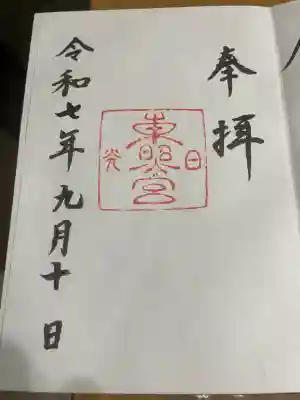 奉拝
日光
東照宮
令和七年九月十日